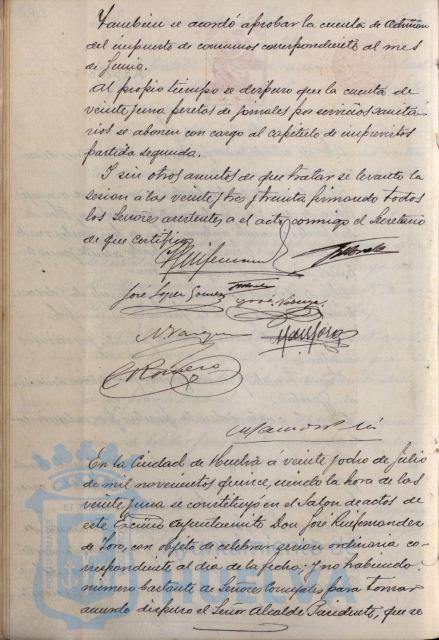 También se acordó aprobar la cuenta de Admón
del impuesto de consumos correspondiente al mes
de Junio.
Al propio tiempo se dispuso que la cuenta de
veinte y una pesetas de jornales por servicios sanita
rios se abonen con cargo al capítulo de imprevistos
partida segunda.
Y sin otros asuntos de que tratar se levantó la
sesion á las veinte y tres y treinta firmando todos
los Señores asistentes a el acto conmigo el Secretario
de que certifico
José Lopez Gomez
C. Romero
En la Ciudad de Huelva á veinte y ocho de Julio
de mil novecientos quince, siendo la hora de las
veinte y una se constituyó en el Salon de actos de
este Excmo Ayuntamiento Don José Ruifernandez
de Toro, con objeto de celebrar sesion ordinaria co-
rrespondiente al dia de la fecha; y no habiendo
número bastante de Señores Concejales para tomar
acuerdo dispuso el Señor Alcalde Presidente, que se
HUELVA